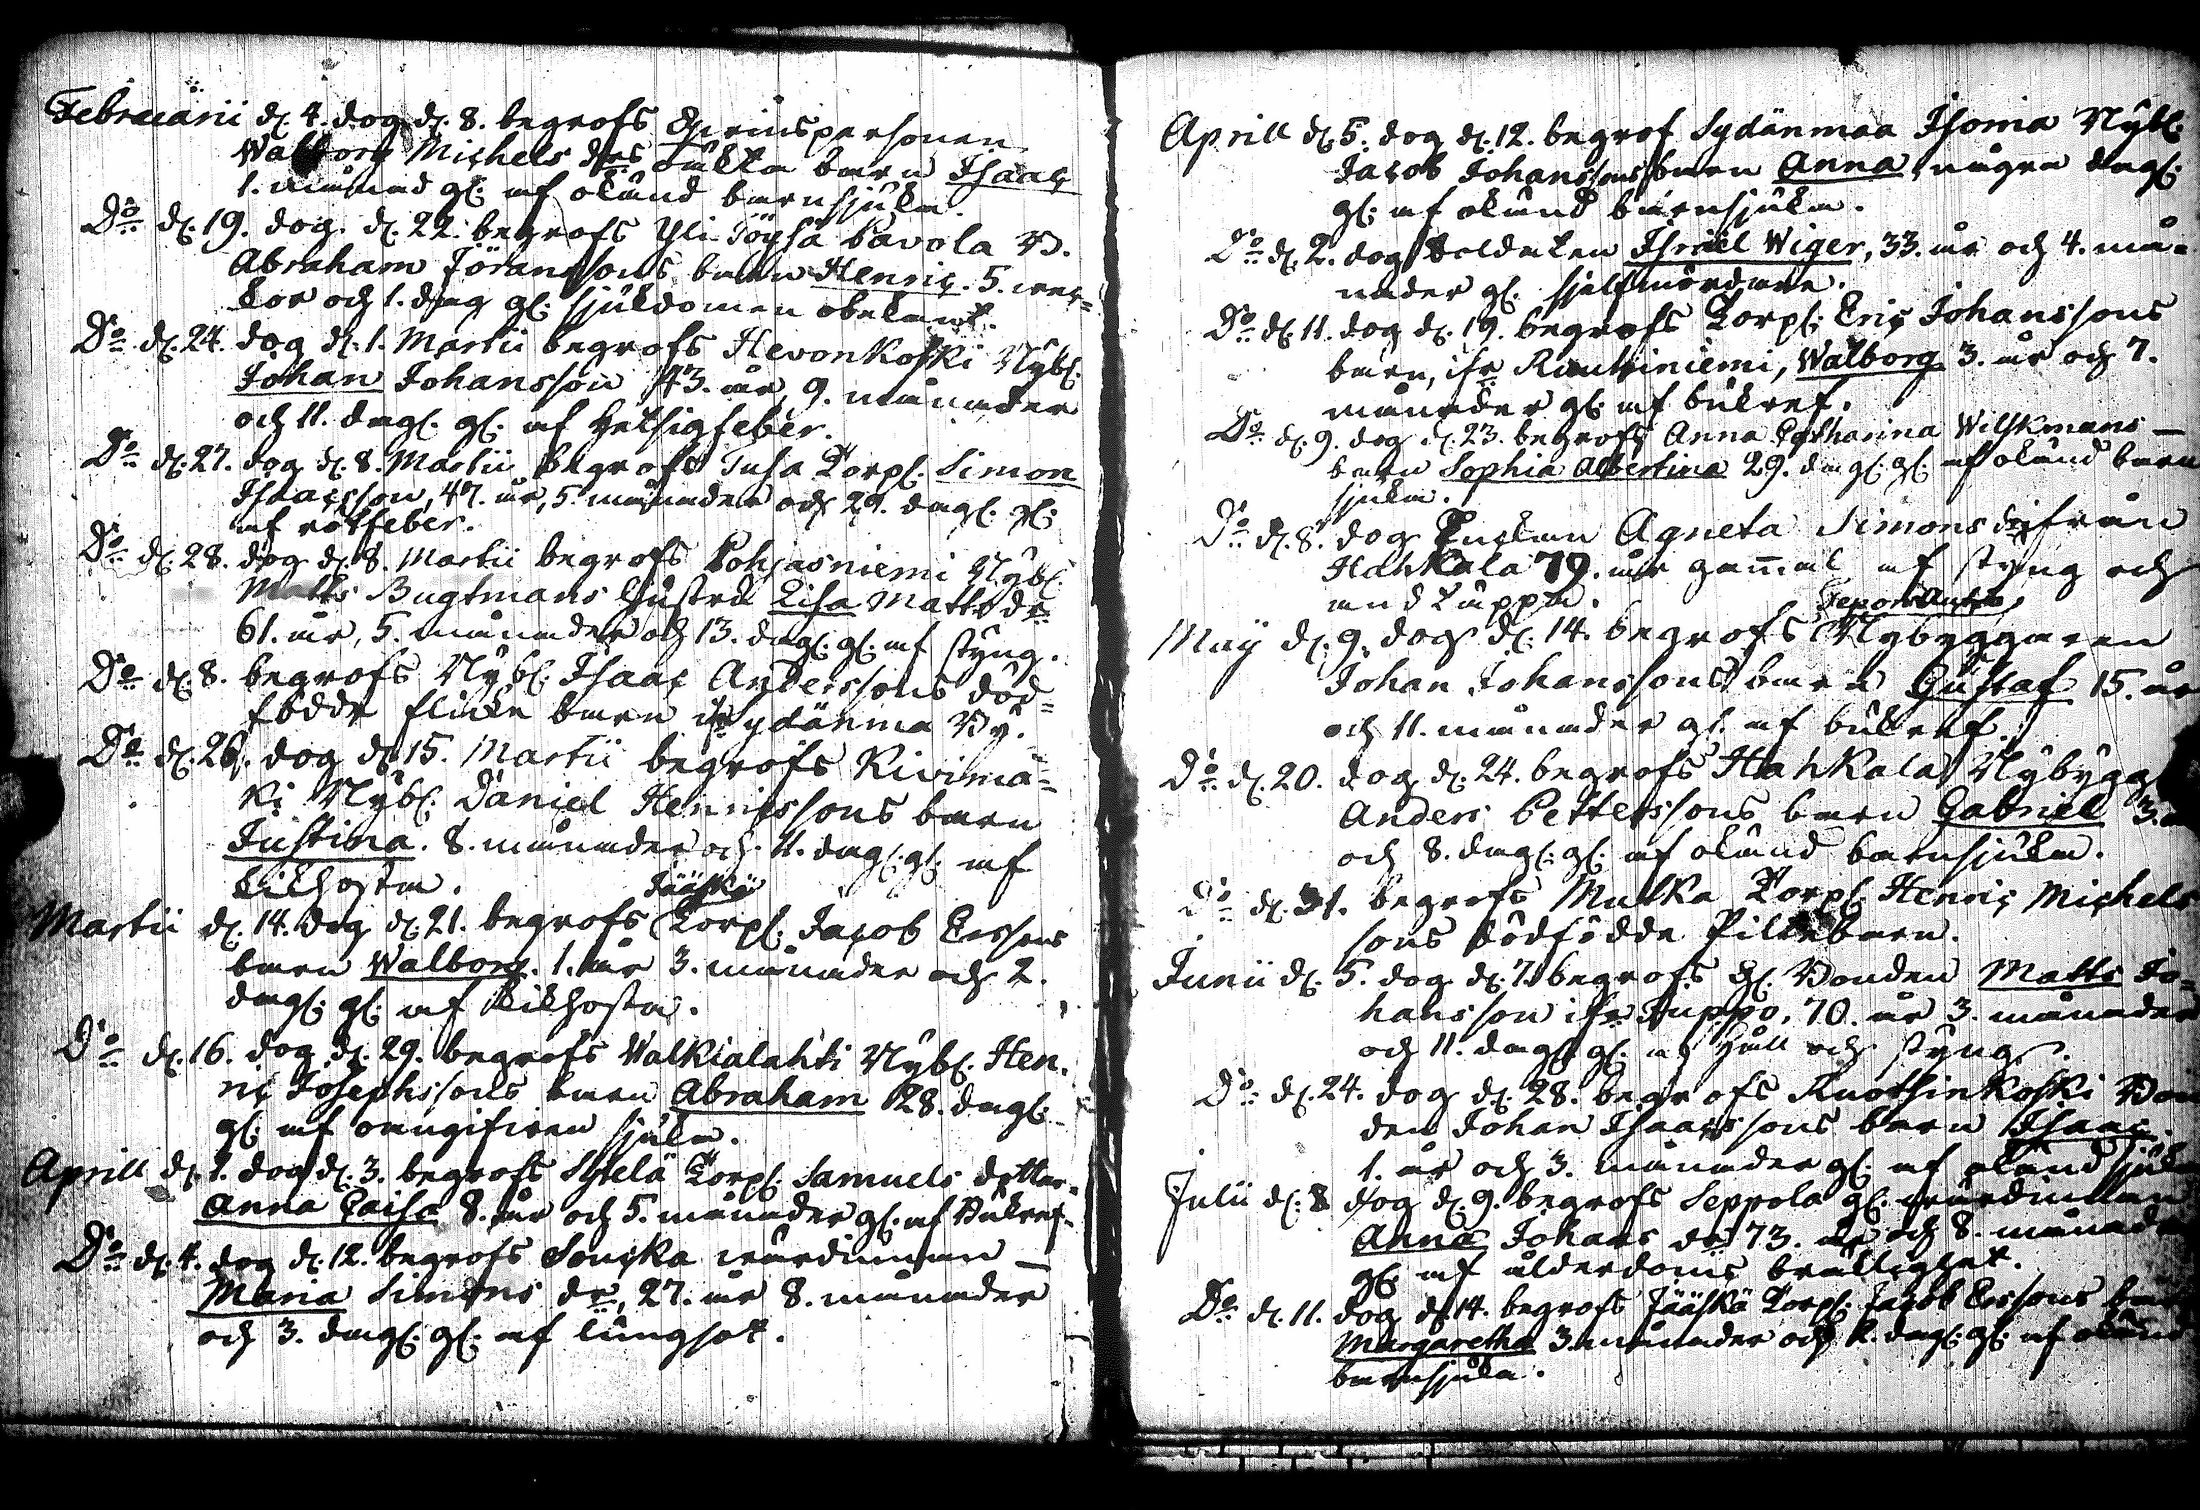 Februarii d. 4. dog d. 8. begrofs personen
Walborg Michels drs oäkta barn Isaac
1. månad gl: af okänd barnsjuka.
Do d. 19. dog. d. 22. begrofs Yli Töysä Pavola B.
Abraham Jöranssons barn Henric. 5. wec-
kor och 1. dag gl: sjukdomen obekant.
Do d. 24. dog d. 1. Martii begrofs Hevonkoski Nyb:
Johan Johansson 43. år, 9. månader
och 11. dag: gl: af hetsigfeber.
Do d. 27. dog d. 8. Martii begrofs Tusa Torp: Simon
Isaacsson, 47. år, 5. månader och 29. dag: gl:
af rötfeber.
Do d. 28. dog d. 8. Martii begrofs Pohjasniemi Nyb:
Matts Bugtmans hustru Lisa Matts dr
61. år, 5. månader och 13. dag: gl: af styng.
Do d. 8. begrofs Nyb: Isaac Anderssons död-
födde flicke barn ifr Sydänma By.
Do d. 26. dog d. 15. Martii begrofs Kivimä-
ki Nyb: Daniel Henricssons barn
Justina. 8. månader och 4. dag: gl: af
kikhosta.
Jääskä
Martii d. 14. dog d. 21. begrofs Torp: Jacob Erssons
barn Walborg. 1. år 3. månader och 2.
dag: gl: af kikhosta.
Do d. 16. dog d. 29. begrofs Walkialahti Nyb: Hen-
ric Josephssons barn Abraham 28. dag:
gl: af sjuka.
Aprill d. 1. dog d. 3. begrofs Torp: Samuels dotter
Anna Caisa 8. år och 5. månader gl: af Bukref.
Do d. 4. dog d. 12. begrofs Soncka wärdinnan
Maria Simons dr, 27. år 8. månader
och 3. dag: gl: af lungsot.
Aprill d. 5. dog d. 12. begrof Sydänmaa Isoma Nyb:
Jacob Johanssons barn Anna, några dag:
gl: af okänd barnsjuka.
Do d. 2. dog Soldaten Israel Wiger, 33. år och 4. må-
nader gl: sjelfmördare.
Do d. 11. dog d. 19. begrofs Torp: Eric Johanssons
barn, ifr Rautiniemi, Walborg 3. år och 7.
månader gl: af bukref.
Do d. 9. dog d. 23. begrofs Anna Catharina Wilskmans
barn Sophia Albertina 29. dag: gl: af okänd barn
sjuka.
Do d. 8. dog Enckan Agneta Simons dr från
Hahkala 79. år gammal af styng och
andtäppa.
May d. 9. dog d. 14. begrofs Nybyggaren
Johan Johanssons barn Gustaf 15. år
och 11. månader gl: af bukref.
Do d. 20. dog d. 24. begrofs Hahkala Nybygg
Anders Petterssons barn Gabriel 3.
och 8. dag: gl: af okänd barnsjuka.
Do d. 31. begrofs Mulka Torp: Henric Michels
sons dödfödde Piltebarn.
Junii d. 5. dog d. 7. begrofs gl: Bonden Matts Jo-
hansson ifr Luppo. 70. år 3. månader
och 11. dag: gl: af håll och styng.
Do d. 24. dog d. 28. begrofs Ruotsinkoski Bon
den Johan Isaacssons barn Isaac.
1. år och 3. månader gl: af okänd sjuka
Julii d. 8 dog d. 9. begrofs Seppola gl: wärdinnan
Anna Johans dr 73. år och 8. månader
gl: af ålderdoms bräklighet.
Do d. 11. dog d. 14. begrofs Jääskä Torp: Jacob Erssons barn
Margaretha 3. månader och 2. dag: gl: af okänd
barnsjuka.